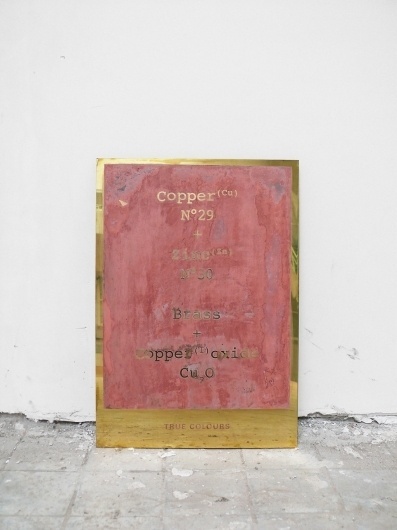 Copper(Cu)
N°29
+
Zinc(Zn)
N°30
Brass
+
Copper(I)oxide
Cu₂O
TRUE COLOURS